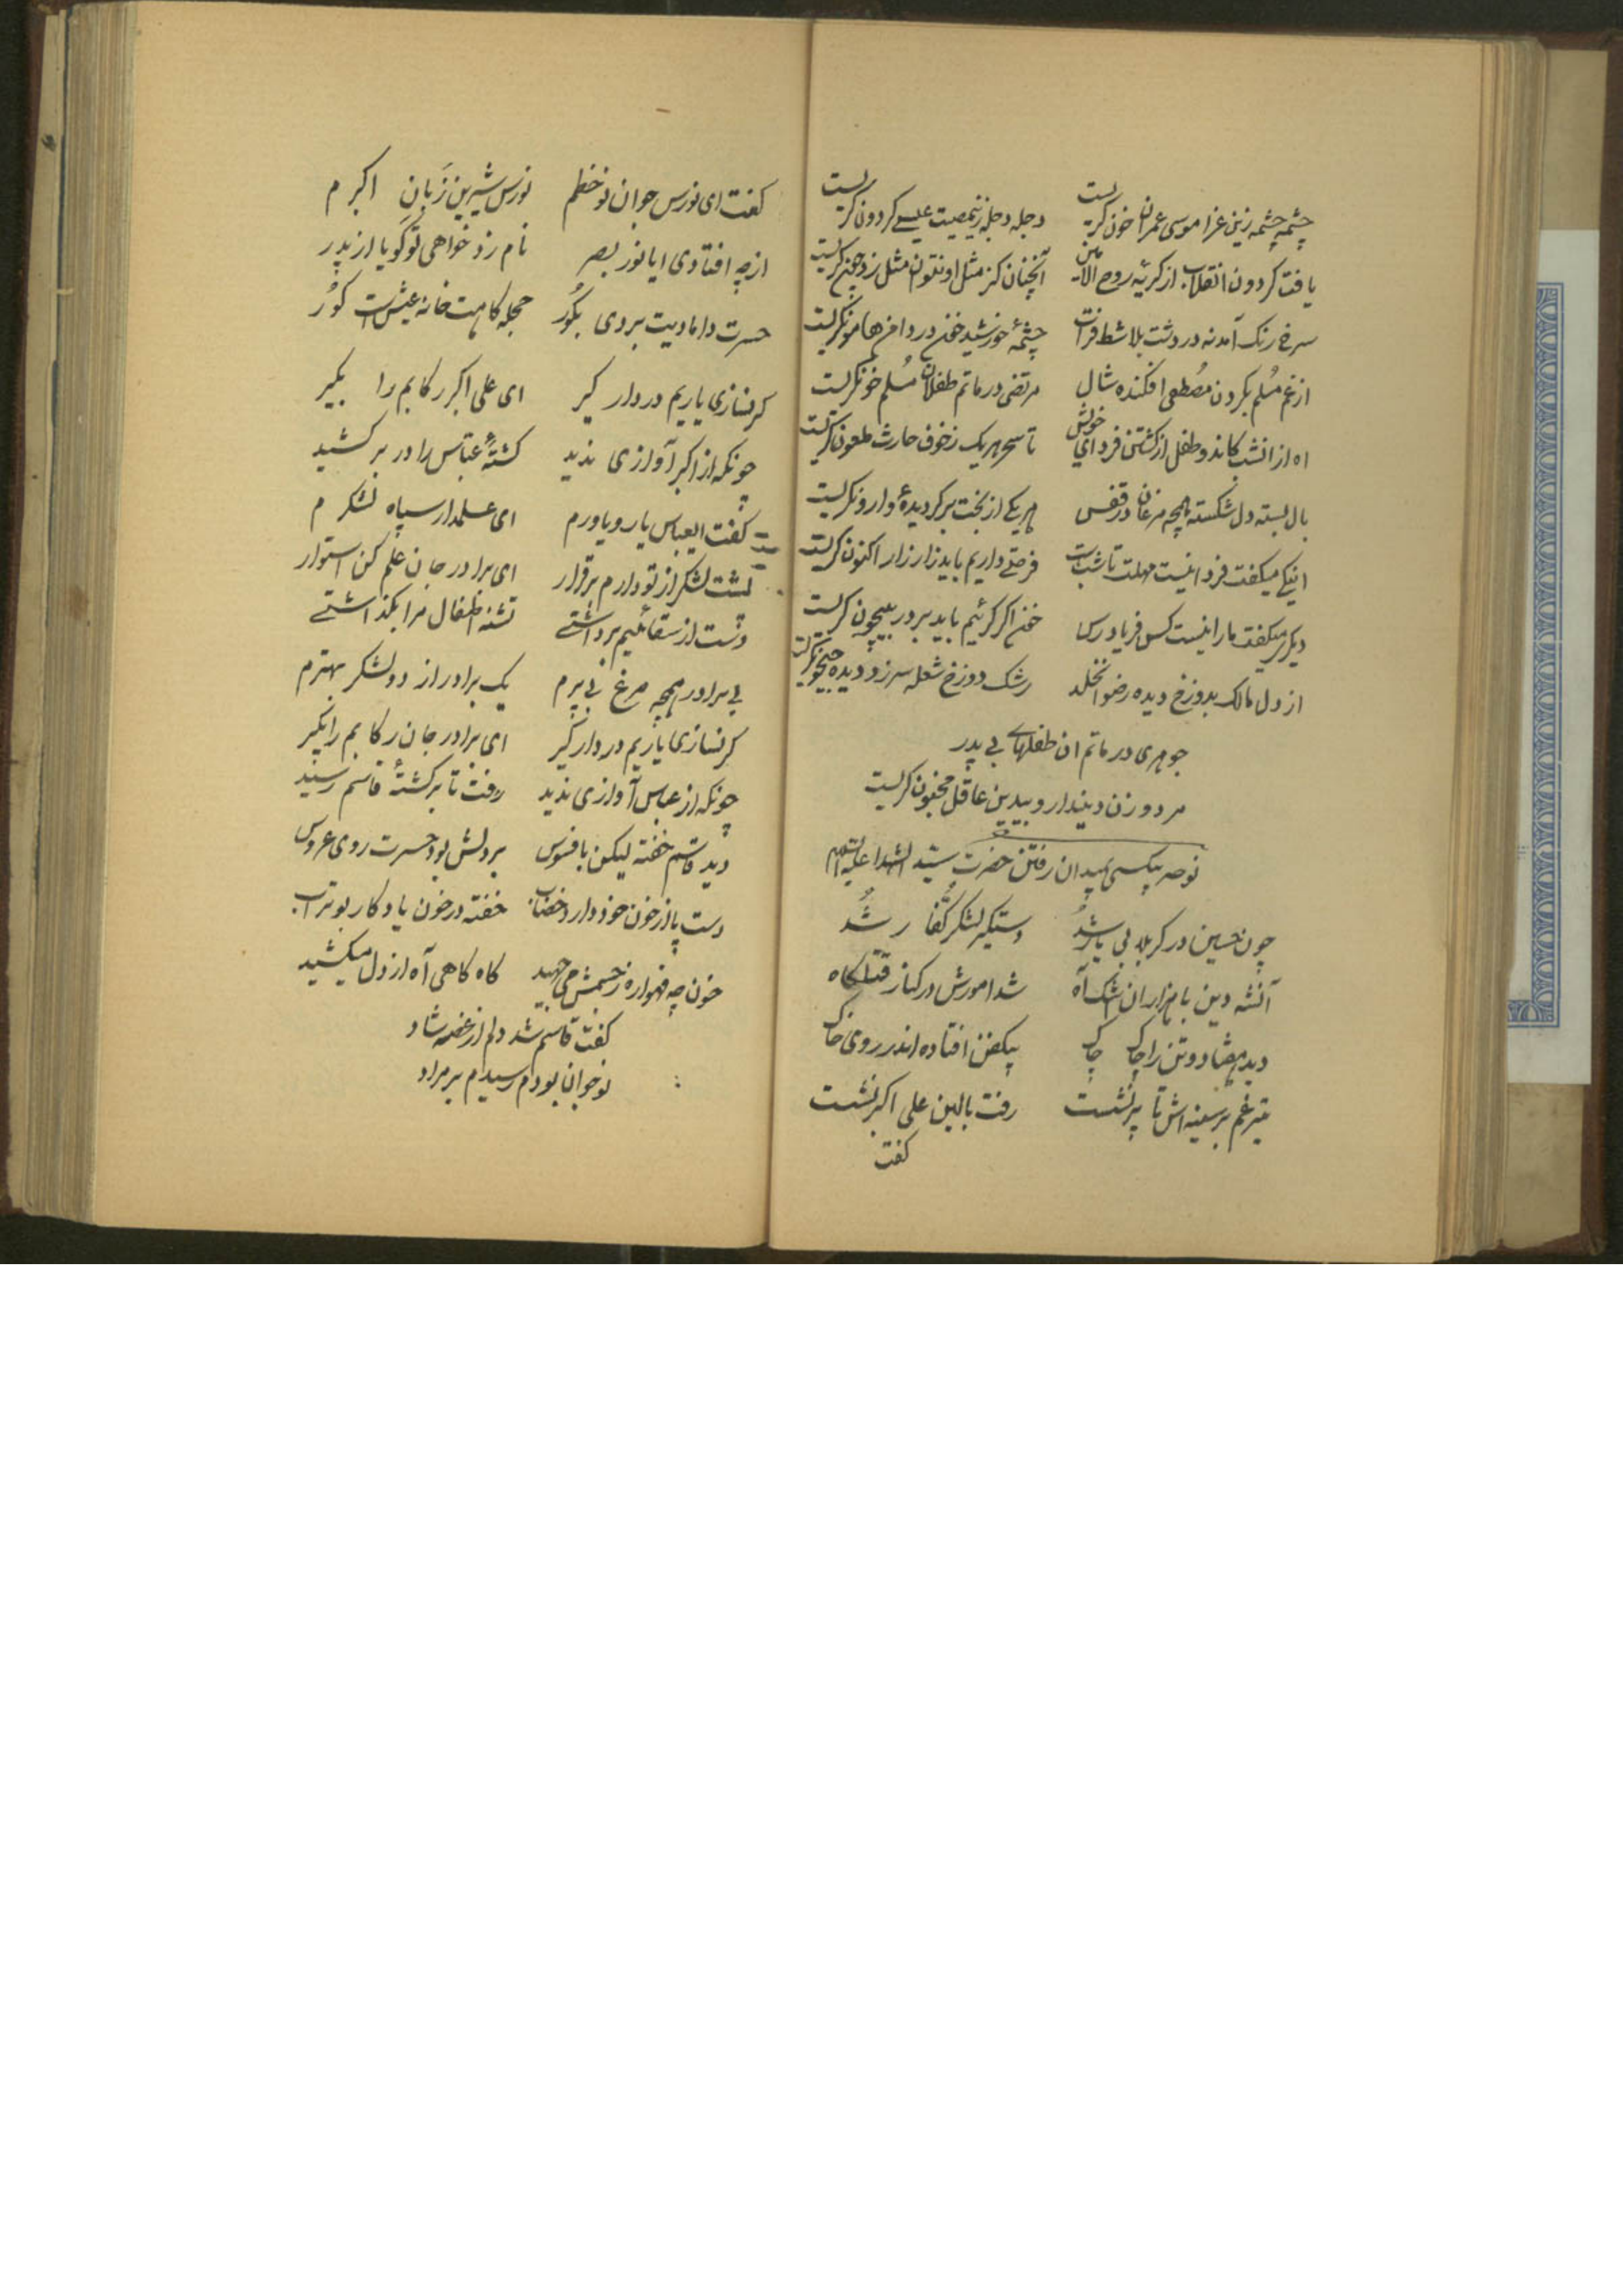 چشمه چشمه زین عزا موسی عمران خون کریست دجله دجله زینمصیبت عیسے کردون کریست
یافت کردون انقلاب از کریه روح الامین آنچنان کز مثل او نتوان مثل زد چون کریست
سرخ رنک آمد نه در دشت بلا شط فرات چشمهٔ خورشید خون در دامن هامون کریست
از غم مُسلم بکردن مصُطفی افکنده شال مرتضی در ماتم طفلان مُسلم خون کریست
اه از انشب کاندو طفل از کشتن فردای خویش تا سحر هر یک زخوف حارث ملعون کریست
بال بسته دل شکسته همچه مرغان در قفس هر یکے از بخت برکردیدهٔ وارون کریست
اینیکے میکفت فردا نیست مهلت تا شب است فرصتے داریم باید زار زار اکنون کریست
دیکر میکفت مارا نیست کس فریادرس خون اکر کرئیم باید بر در بیچون کریست
از دل مالک بدوزخ دیده رضوان بخلد رشک دوزخ شعله سرزد دیده جیحون کریست
جوهری در ماتم ان طفلهاے بی پدر
مرد و زن دیندار و بیدین عاقل و مجنون کریست
نوحه بیکسی بمیدان رفتن حضرت سیّد الشهدا علیه السلام
چون حسین در کربلا بی یار شُد دستکیر لشکر کُفّا ر شُد
آنشه دین با هزاران اشک آه شد امورش در کنار قتلکاه
دید هفتاد و دو تن را چاک چاک بیکفن افتاده اندر روی خاک
تیر غم بر سینه اش تا پر نشست رفت بالین علی اکبر نشست
کفت
کفت ای نورس جوان نو خطم نورس شیرین زَبانِ اکبرم
از چه افتادی ایا نور بصر نام زد خواهی تو کویا از پدر
حسرت دامادیت بردی بکُور حجله کاهت خانه عیش است کوُر
کر نسازی یاریم در دار کیر ای علی اکبر رکابم را بکیر
چونکه از اکبر آوازی ندید کشتهٔ عبّاس را در بر کشید
کفت ایعباس یار و یاورم ای علمدار سپاه لشکرم
پشت لشکر از تو دارم برقرار ای برادر جان علم کن استوار
دست از سقائیم برداشتے تشنه اطفال مرا بکذاشتے
بی برادر همچه مرغ بی پرم یک برادر از دو لشکر بهترم
کر نسازی یاریم در دار کیر ای برادر جان رکابم را بکیر
چونکه از عباس آوازی ندید رفت تا بر کشتهٔ قاسم رسید
دید قاسم خفته لیکن با فسوس بر دلش بود حسرت روی عروس
دست پا از خون خود دارد خضاب خفته در خون یادکار بوتراب
خون چه فهواره ز جسمش می جهید کاه کاهی آه از دل میکشید
کفت قاسم شد دلم از غصه شاد
نوجوان بودم رسیدم بر مراد